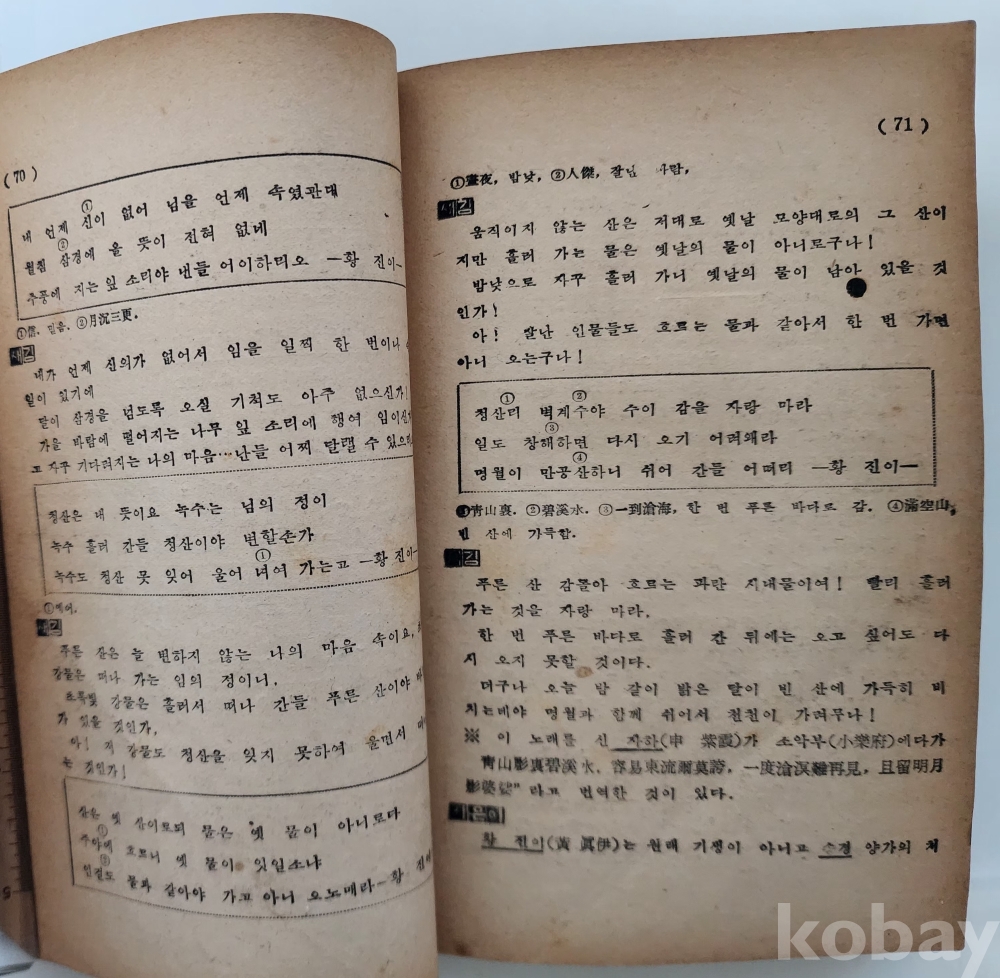 (70)
①
내 언제 신이 없어 님을 언제 속였관대
②
월침 삼경에 올 뜻이 전혀 없네
추풍에 지는 잎 소리야 낸들 어이하리오 —황 진이—
①信. 믿음. ②月沉三更.
새김
내가 언제 신의가 없어서 임을 일찍 한 번이나
일이 있기에
달이 삼경을 넘도록 오실 기척도 아주 없으신가!
가을 바람에 떨어지는 나무 잎 소리에 행여 임이신가
고 자꾸 기다려지는 나의 마음…난들 어찌 달랠 수 있으
청산은 내 뜻이요 녹수는 님의 정이
녹수 흘러 간들 청산이야 변할손가
①
녹수도 청산 못 잊어 울어 녀여 가는고 —황 진이—
①예어.
새김
푸른 산은 늘 변하지 않는 나의 마음 속이요,
강물은 떠나 가는 임의 정이니,
초록빛 강물은 흘러서 떠나 간들 푸른 산이야
가 있을 것인가,
아! 저 강물도 청산을 잊지 못하여 울면서
는 것인가!
산은 옛 산이로되 물은 옛 물이 아니로다
①
주야에 흐르니 옛 물이 잇일소냐
②
인걸도 물과 같아야 가고 아니 오노매라—황 진이
(71)
①晝夜, 밤낮, ②人傑, 잘난 사람,
새김
움직이지 않는 산은 저대로 옛날 모양대로의 그 산이
지만 흘러 가는 물은 옛날의 물이 아니로구나!
밤낮으로 자꾸 흘러 가니 옛날의 물이 남아 있을 것
인가!
아! 잘난 인물들도 흐르는 물과 같아서 한 번 가면
아니 오는구나!
① ②
청산리 벽계수야 수이 감을 자랑 마라
③
일도 창해하면 다시 오기 어려워라
④
명월이 만공산하니 쉬어 간들 어떠리 —황 진이—
①靑山裏. ②碧溪水. ③一到滄海, 한 번 푸른 바다로 감. ④滿空山,
빈 산에 가득함.
새김
푸른 산 감돌아 흐르는 파란 시내물이여! 빨리 흘러
가는 것을 자랑 마라,
한 번 푸른 바다로 흘러 간 뒤에는 오고 싶어도 다
시 오지 못할 것이다.
더구나 오늘 밤 같이 밝은 달이 빈 산에 가득히 비
치는데야 명월과 함께 쉬어서 천천이 가려무나!
※ 이 노래를 신 자하(申 紫霞)가 소악부(小樂府)에다가
靑山影裏碧溪水, 容易東流爾莫誇, 一度滄溟難再見, 且留明月
影婆娑” 라고 번역한 것이 있다.
지은이
황 진이(黃 眞伊)는 원래 기생이 아니고 송경 양가의 처
kobay